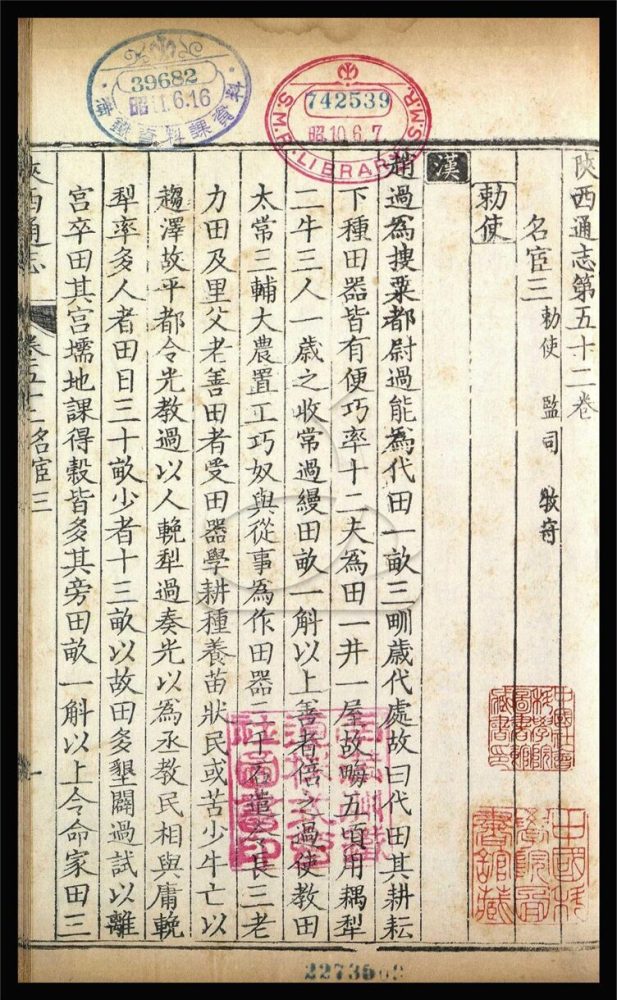 39682
昭11.6.16
742539
昭10.6.7
S.M.R. LIBRARY
陜西通志第五十二卷
名宦三 勅使 監司 牧守
勅使
漢
趙過爲搜粟都尉過能爲代田一畝三甽歲代處故曰代田其耕耘
下種田器皆有便巧率十二夫爲田一井一屋故畮五頃用耦犁
二牛三人一歲之收常過縵田畝一斛以上善者倍之過使教田
太常三輔大農置工巧奴與從事爲作田器二千石遣令長三老
力田及里父老善田者受田器學耕種養苗狀民或苦少牛亡以
趨澤故平都令光教過以人輓犁過奏光以為丞教民相與庸輓
犁率多人者田日三十畝少者十三畝以故田多墾闢過試以離
宮卒田其宮壖地課得穀皆多其旁田畝一斛以上令命家田三
陜西通志 卷五十二 名宦三 一